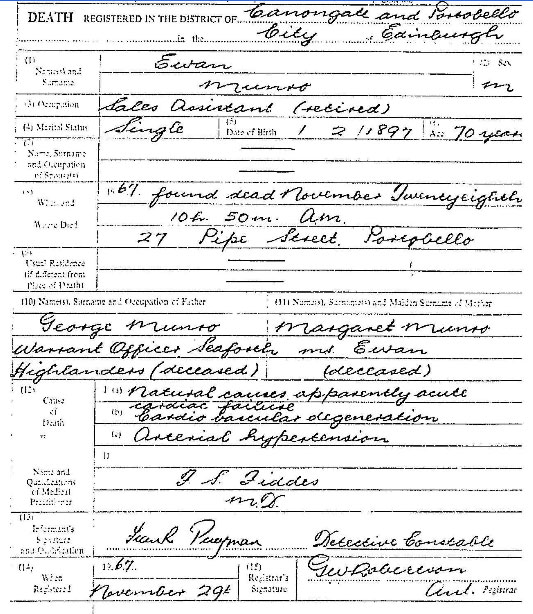 DEATH REGISTERED IN THE DISTRICT OF Canongate and Portobello
in the City of Edinburgh
(1) Name(s) and Surname Ewan Munro (2) Sex M
(3) Occupation Sales Assistant (retired)
(4) Marital Status Single (5) Date of Birth 1 2 1897 (6) Age 70 years
(7) Name, Surname and Occupation of Spouse(s)
(8) When and Where Died 1967. found dead November Twentyeighth
10h. 50m. Am.
27 Pipe Street, Portobello
(9) Usual Residence (if different from Place of Death)
(10) Name(s), Surname and Occupation of Father (11) Name(s), Surname(s) and Maiden Surname of Mother
George Munro Margaret Munro
Warrant Officer Seaforth ms. Ewan
Highlanders (deceased) (deceased)
(12) Cause of Death I (a) Natural causes, apparently acute
cardiac failure
(b) Cardio vascular degeneration
(c) Arterial hypertension
II
Name and Qualifications of Medical Practitioner F. S. Fiddes
M.D.
(13) Informant's Signature and Qualification Frank Detective Constable
(14) When Registered 1967. (15) Registrar's Signature
November 29th Registrar